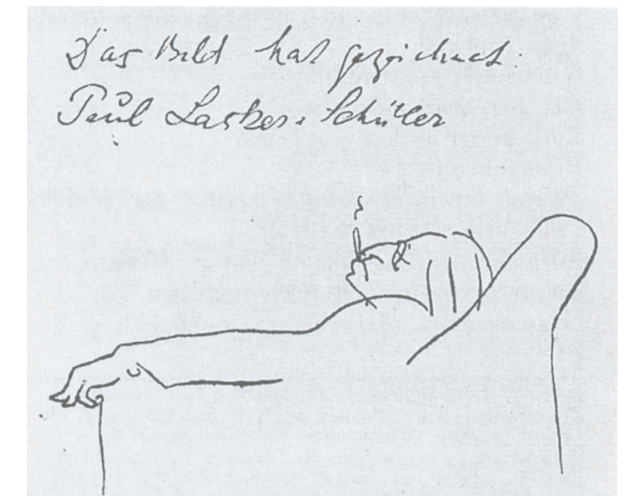 Das Bild hat gezeichnet:
Paul Lasker-Schüler